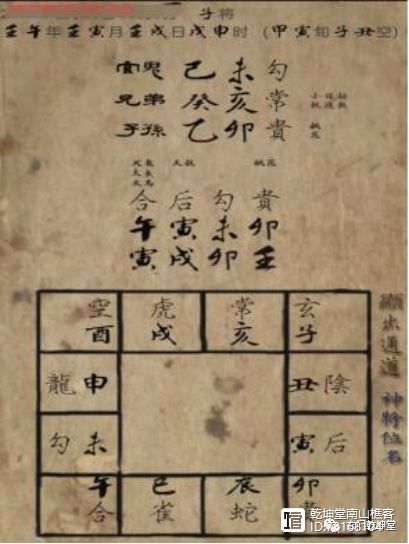 子将
壬午年壬寅月壬戌日戊申时 (甲寅旬子丑空)
官鬼 己 未 勾
兄弟 癸 亥 常
子孫 乙 卯 貴 桃花
桃花
合 后 勾 貴
午 寅 未 卯
寅 戌 卯 壬
空 虎 常 玄
酉 戌 亥 子
龍 申 丑 陰
勾 未 寅 后
午 巳 辰 卯
合 雀 蛇
通道
神將位名
乾坤堂南山樵客